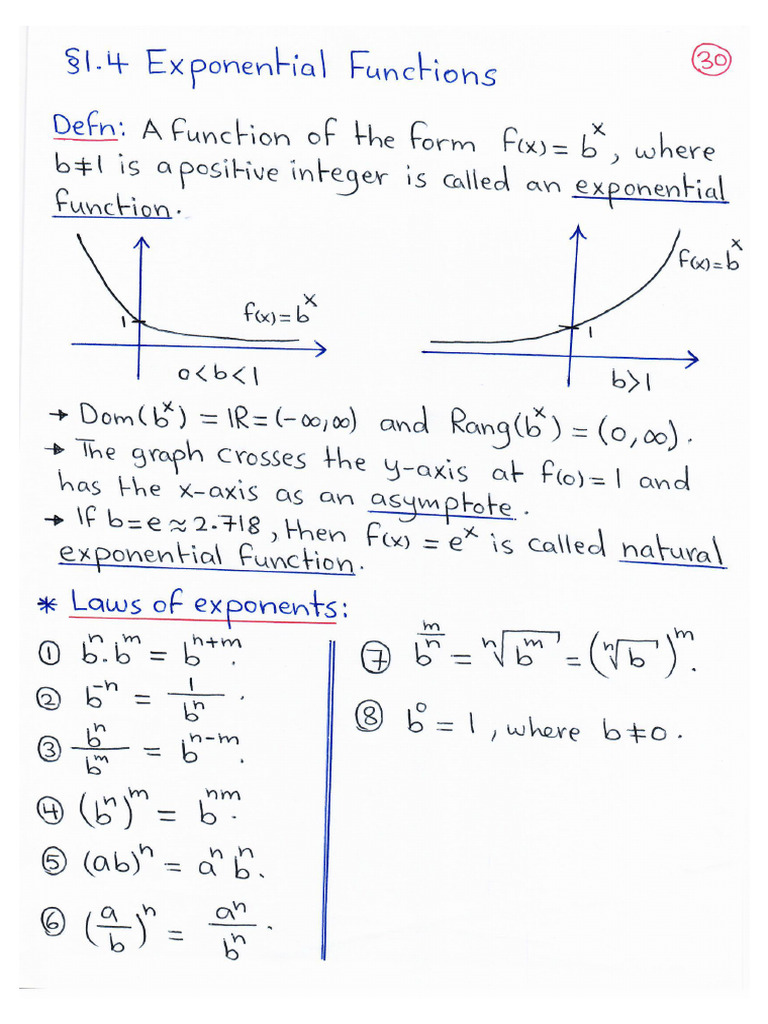 §1.4 Exponential Functions
30
Defn: A function of the form f(x) = b^x, where
b≠1 is a positive integer is called an exponential
function.
f(x) = b^x
1
0<b<1
f(x) = b^x
1
b>1
→ Dom(b^x) = IR = (-∞,∞) and Rang(b^x) = (0,∞).
→ The graph crosses the y-axis at f(0) = 1 and
has the x-axis as an asymptote.
→ If b=e≈2.718, then f(x) = e^x is called natural
exponential function.
* Laws of exponents:
① b^n . b^m = b^(n+m).
② b^(-n) = 1/b^n.
③ b^n/b^m = b^(n-m).
④ (b^n)^m = b^(nm).
⑤ (ab)^n = a^n b^n.
⑥ (a/b)^n = a^n/b^n.
⑦ b^(m/n) = ⁿ√(b^m) = (ⁿ√b)^m.
⑧ b^0 = 1, where b≠0.